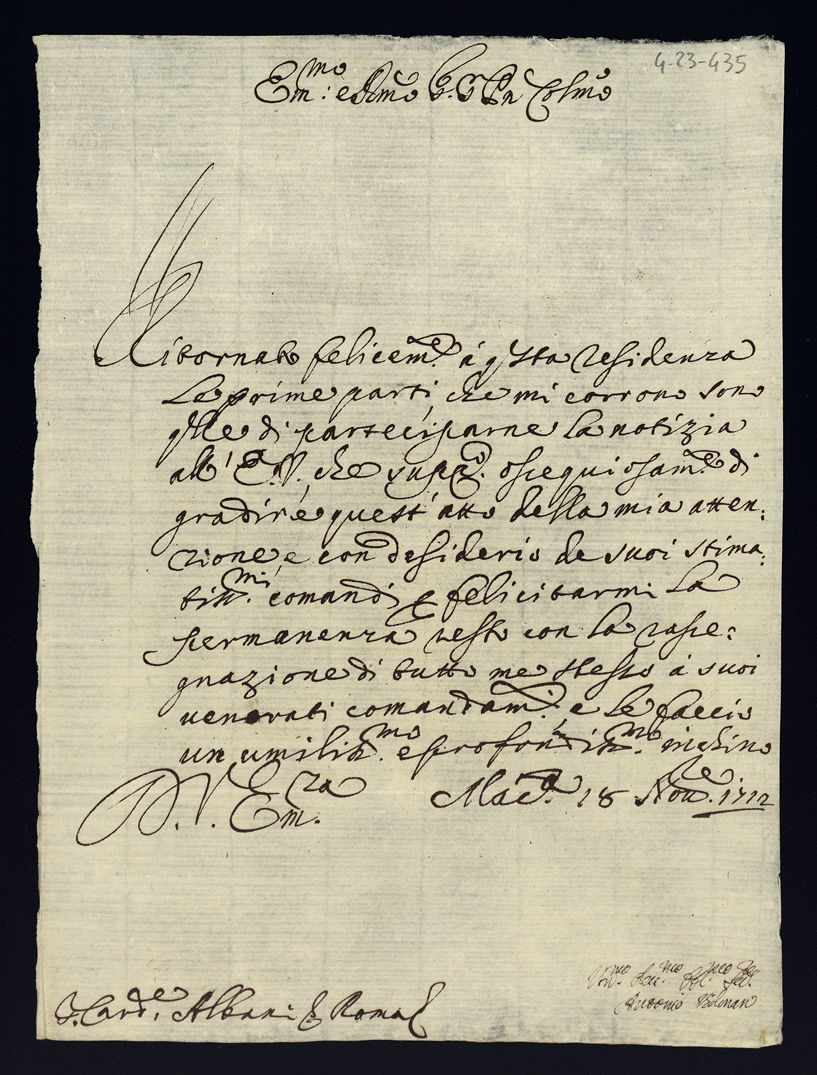 4-23-435
Em:mo e Rmo Sig.r P.n Colmo
Ritornato felicem.e á qsta residenza
le prime parti che mi corrono sono
qlle di parteciparne la notizia
all' E.V. che supp.o ossequiosam.e di
gradire quest' atto della mia atten:
zione, e con desiderio de suoi stima:
tiss.mi comandi p felicitarmi la
permanenza resto con la rasse:
gnazione di tutto me stesso á suoi
venerati comandam.i, e le faccio
un umiliss.mo e profondiss.mo inchino
D. V. Em.za Mac.a 18 Nov.e 1712
Um.mo Dev.mo Obl.mo
Antonio
S. Card.e Albani p Roma